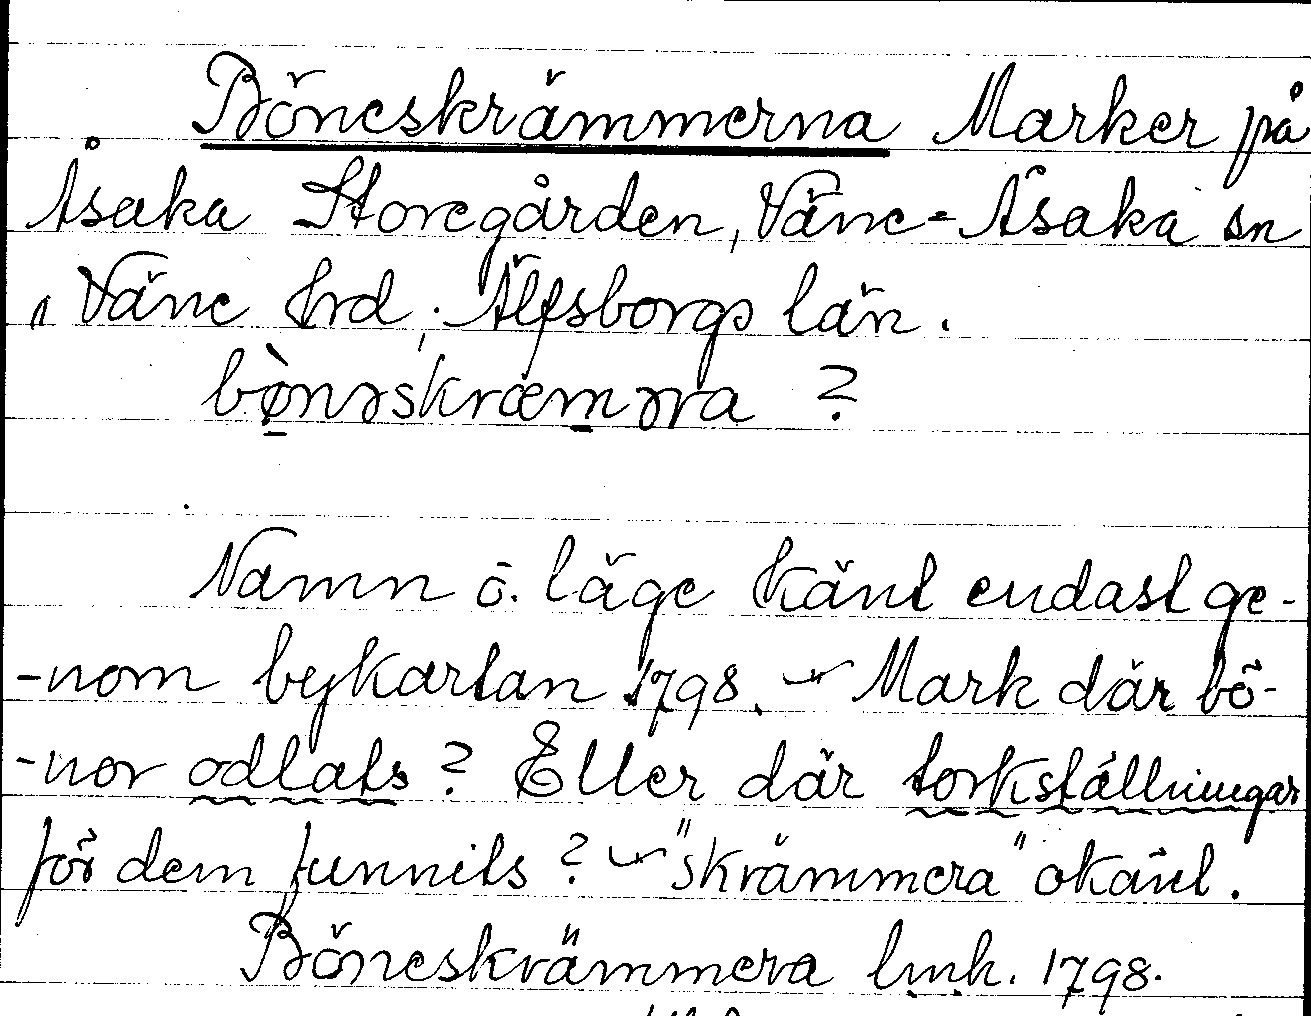 Böneskrämmerna Marker på
Åsaka Storegården, Väne-Åsaka sn
Väne hrd, Älfsborgs län.
bònəskræmərra ?
Namn o. läge känt endast ge-
-nom bykartan 1798. — Mark där bö-
-nor odlats ? Eller där torkställningar
för dem funnits ? — "skrämmera" okänt.
Böneskrämmera lmh. 1798.